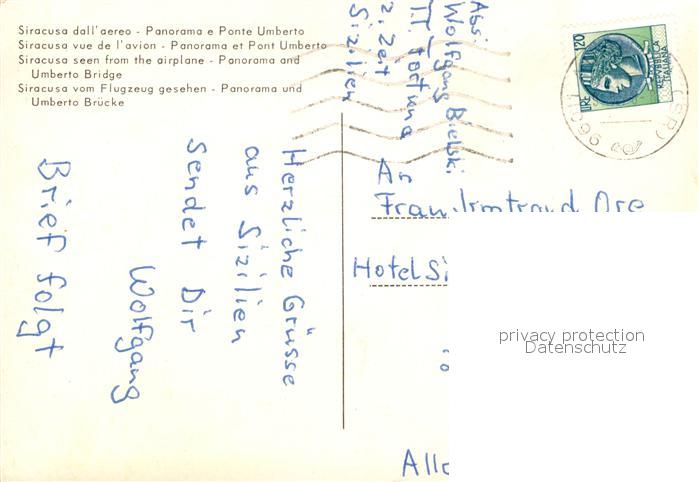 Siracusa dall'aereo - Panorama e Ponte Umberto
Siracusa vue de l'avion - Panorama et Pont Umberto
Siracusa seen from the airplane - Panorama and
Umberto Bridge
Siracusa vom Flugzeug gesehen - Panorama und
Umberto Brücke
Herzliche Grüsse
aus Sizilien
sendet Dir
Wolfgang
Brief folgt
Abs:
Wolfgang Bielski
z. Zeit
Sizilien
LIRE 120
REPUBBLICA
ITALIANA
An
Frau Irmtraud
Hotel
privacy protection
Datenschutz